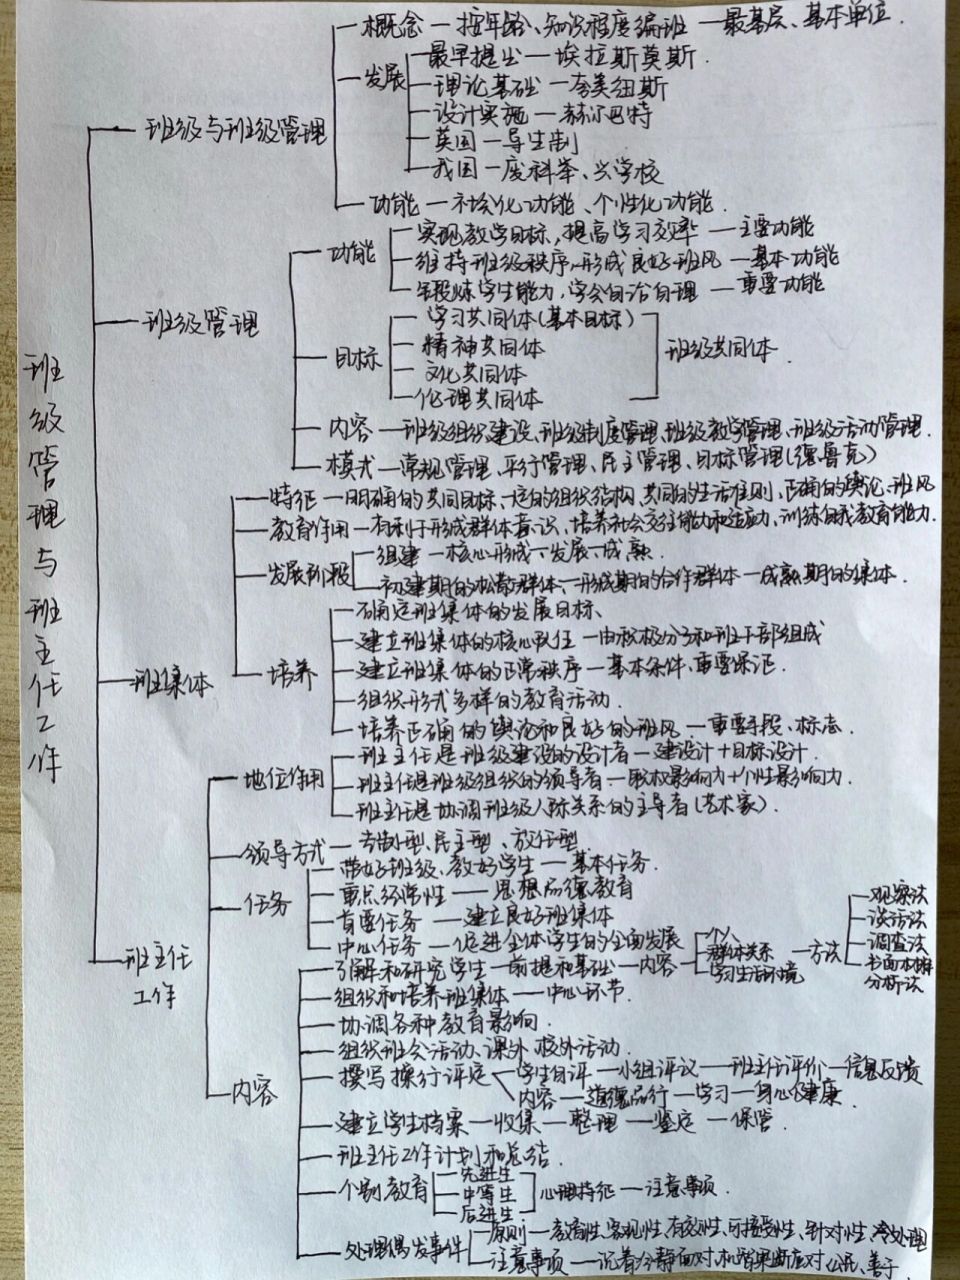 班级管理与班主任工作
班级与班级管理
概念—按年龄、知识程度编班—最基层、基本单位.
发展
最早提出—埃拉斯莫斯.
理论基础—夸美纽斯
设计实施—赫尔巴特
英国—导生制
我国—废科举、兴学校
功能—社会化功能、个性化功能.
班级管理
功能
实现教学目标,提高学习效率—主要功能
维持班级秩序,形成良好班风—基本功能
锻炼学生能力,学会自治自理—重要功能
目标
学习共同体(基本目标)
精神共同体
文化共同体
伦理共同体
班级共同体.
内容—班级组织建设、班级制度管理、班级教学管理、班级活动管理.
模式—常规管理、平行管理、民主管理、目标管理(德鲁克)
班集体
特征—明确的共同目标、一定的组织结构、共同的生活准则、正确的舆论、班风
教育作用—有利于形成群体意识、培养社会交往能力和适应力、训练自我教育能力.
发展阶段
组建—核心形成—发展—成熟.
初建期的松散群体—形成期的合作群体—成熟期的集体.
培养
确定班集体的发展目标、
建立班集体的核心队伍—由积极分子和班干部组成
建立班集体的正常秩序—基本条件、重要保证.
组织形式多样的教育活动.
培养正确的舆论和良好的班风—重要手段、标志.
班主任工作
地位作用
班主任是班级建设的设计者—建设设计+目标设计.
班主任是班级组织的领导者—职权影响力+个性影响力.
班主任是协调班级人际关系的主导者(艺术家).
领导方式—专制型、民主型、放任型.
任务
带好班级、教好学生—基本任务.
重点经常性—思想品德教育
首要任务—建立良好班集体
中心任务—促进全体学生的全面发展
内容
了解和研究学生—前提和基础—内容
个人
群体关系
学习生活环境
方法
观察法
谈话法
调查法
书面材料
分析法
组织和培养班集体—中心环节.
协调各种教育影响.
组织班会活动、课外校外活动.
撰写操行评定
学生自评—小组评议—班主任评价—信息反馈
内容—道德品行—学习—身心健康.
建立学生档案—收集—整理—鉴定—保管.
班主任工作计划和总结.
个别教育
先进生
中等生
后进生
心理特征—注意事项.
处理偶发事件
原则—教育性、客观性、有效性、可接受性、针对性、冷处理
注意事项—沉着冷静面对、机智果断应对、公平、善于